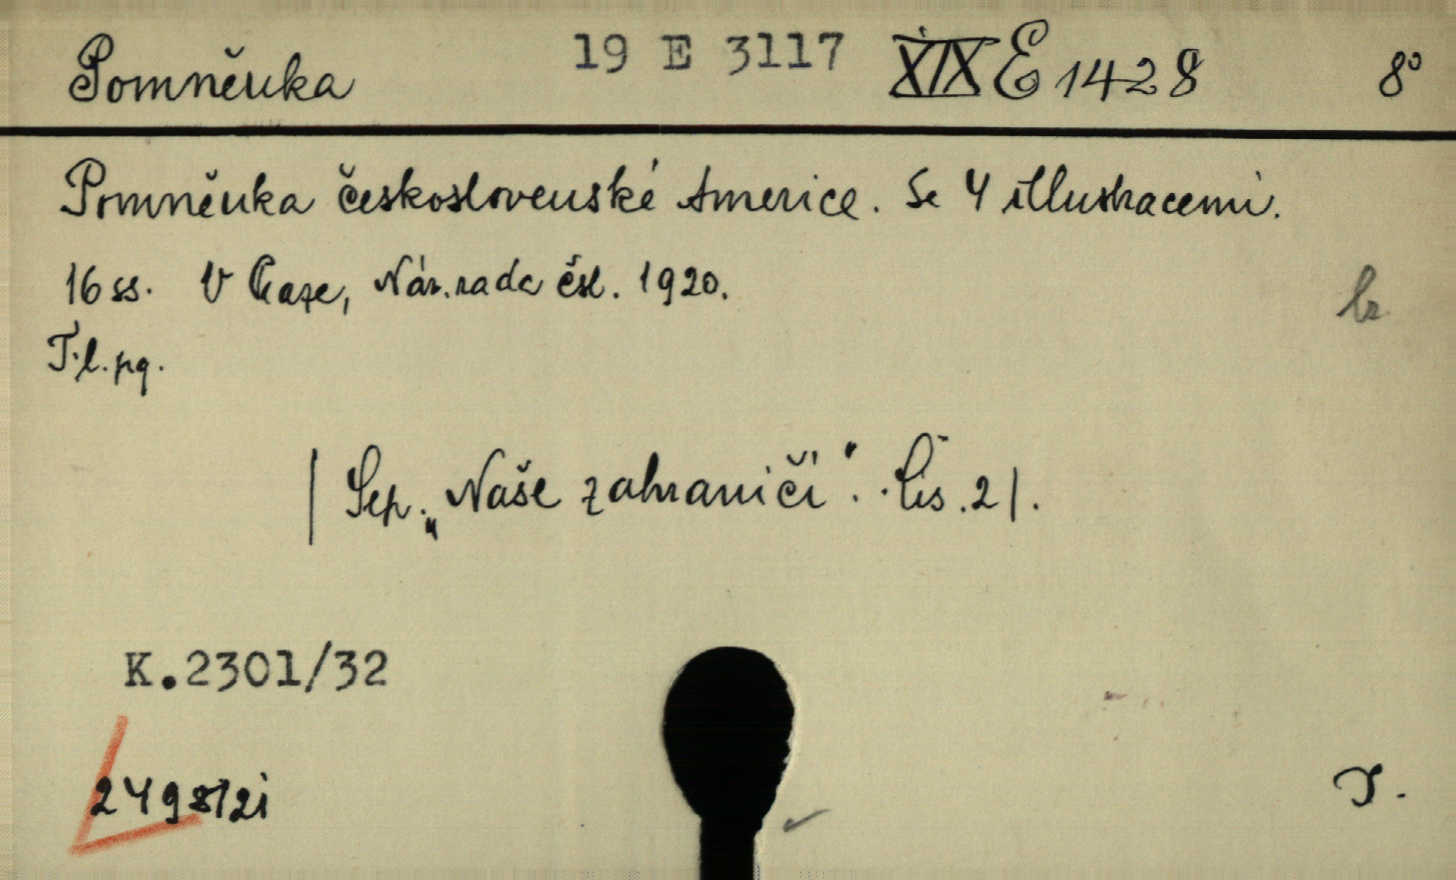 Pomněnka 19 E 3117 XIX E 1428 8°
Pomněnka československé Americe. Se 4 illustracemi.
16 ss. V Praze, Nár. rada čsl. 1920.
br
T. l. pg.
| Sep. „Naše zahraničí". Čís. 2|.
K.2301/32